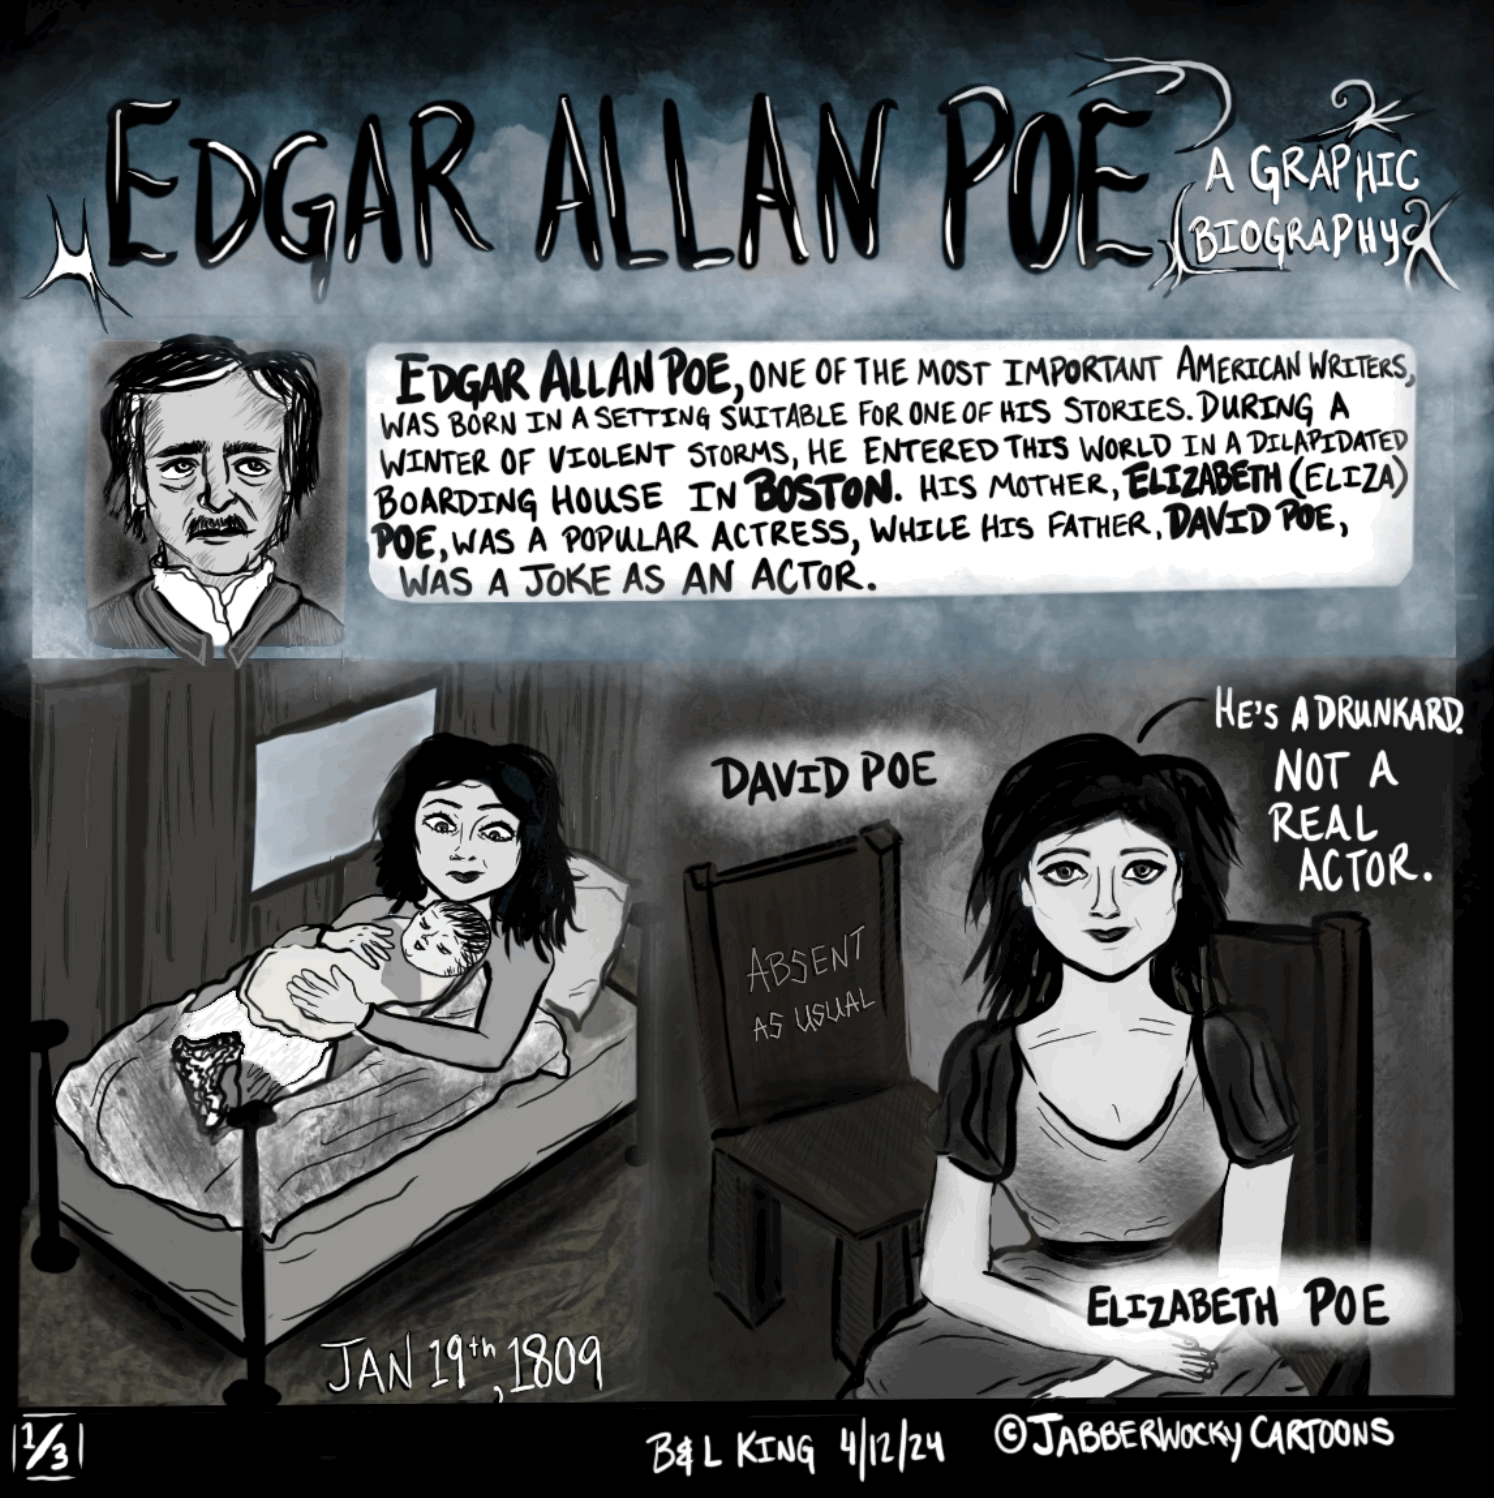 EDGAR ALLAN POE
A GRAPHIC
BIOGRAPHY
EDGAR ALLAN POE, ONE OF THE MOST IMPORTANT AMERICAN WRITERS,
WAS BORN IN A SETTING SUITABLE FOR ONE OF HIS STORIES. DURING A
WINTER OF VIOLENT STORMS, HE ENTERED THIS WORLD IN A DILAPIDATED
BOARDING HOUSE IN BOSTON. HIS MOTHER, ELIZABETH (ELIZA)
POE, WAS A POPULAR ACTRESS, WHILE HIS FATHER, DAVID POE,
WAS A JOKE AS AN ACTOR.
JAN 19th, 1809
DAVID POE
ABSENT
AS USUAL
HE'S A DRUNKARD.
NOT A
REAL
ACTOR.
ELIZABETH POE
1/3
B&L KING 4/12/24
© JABBERWOCKY CARTOONS